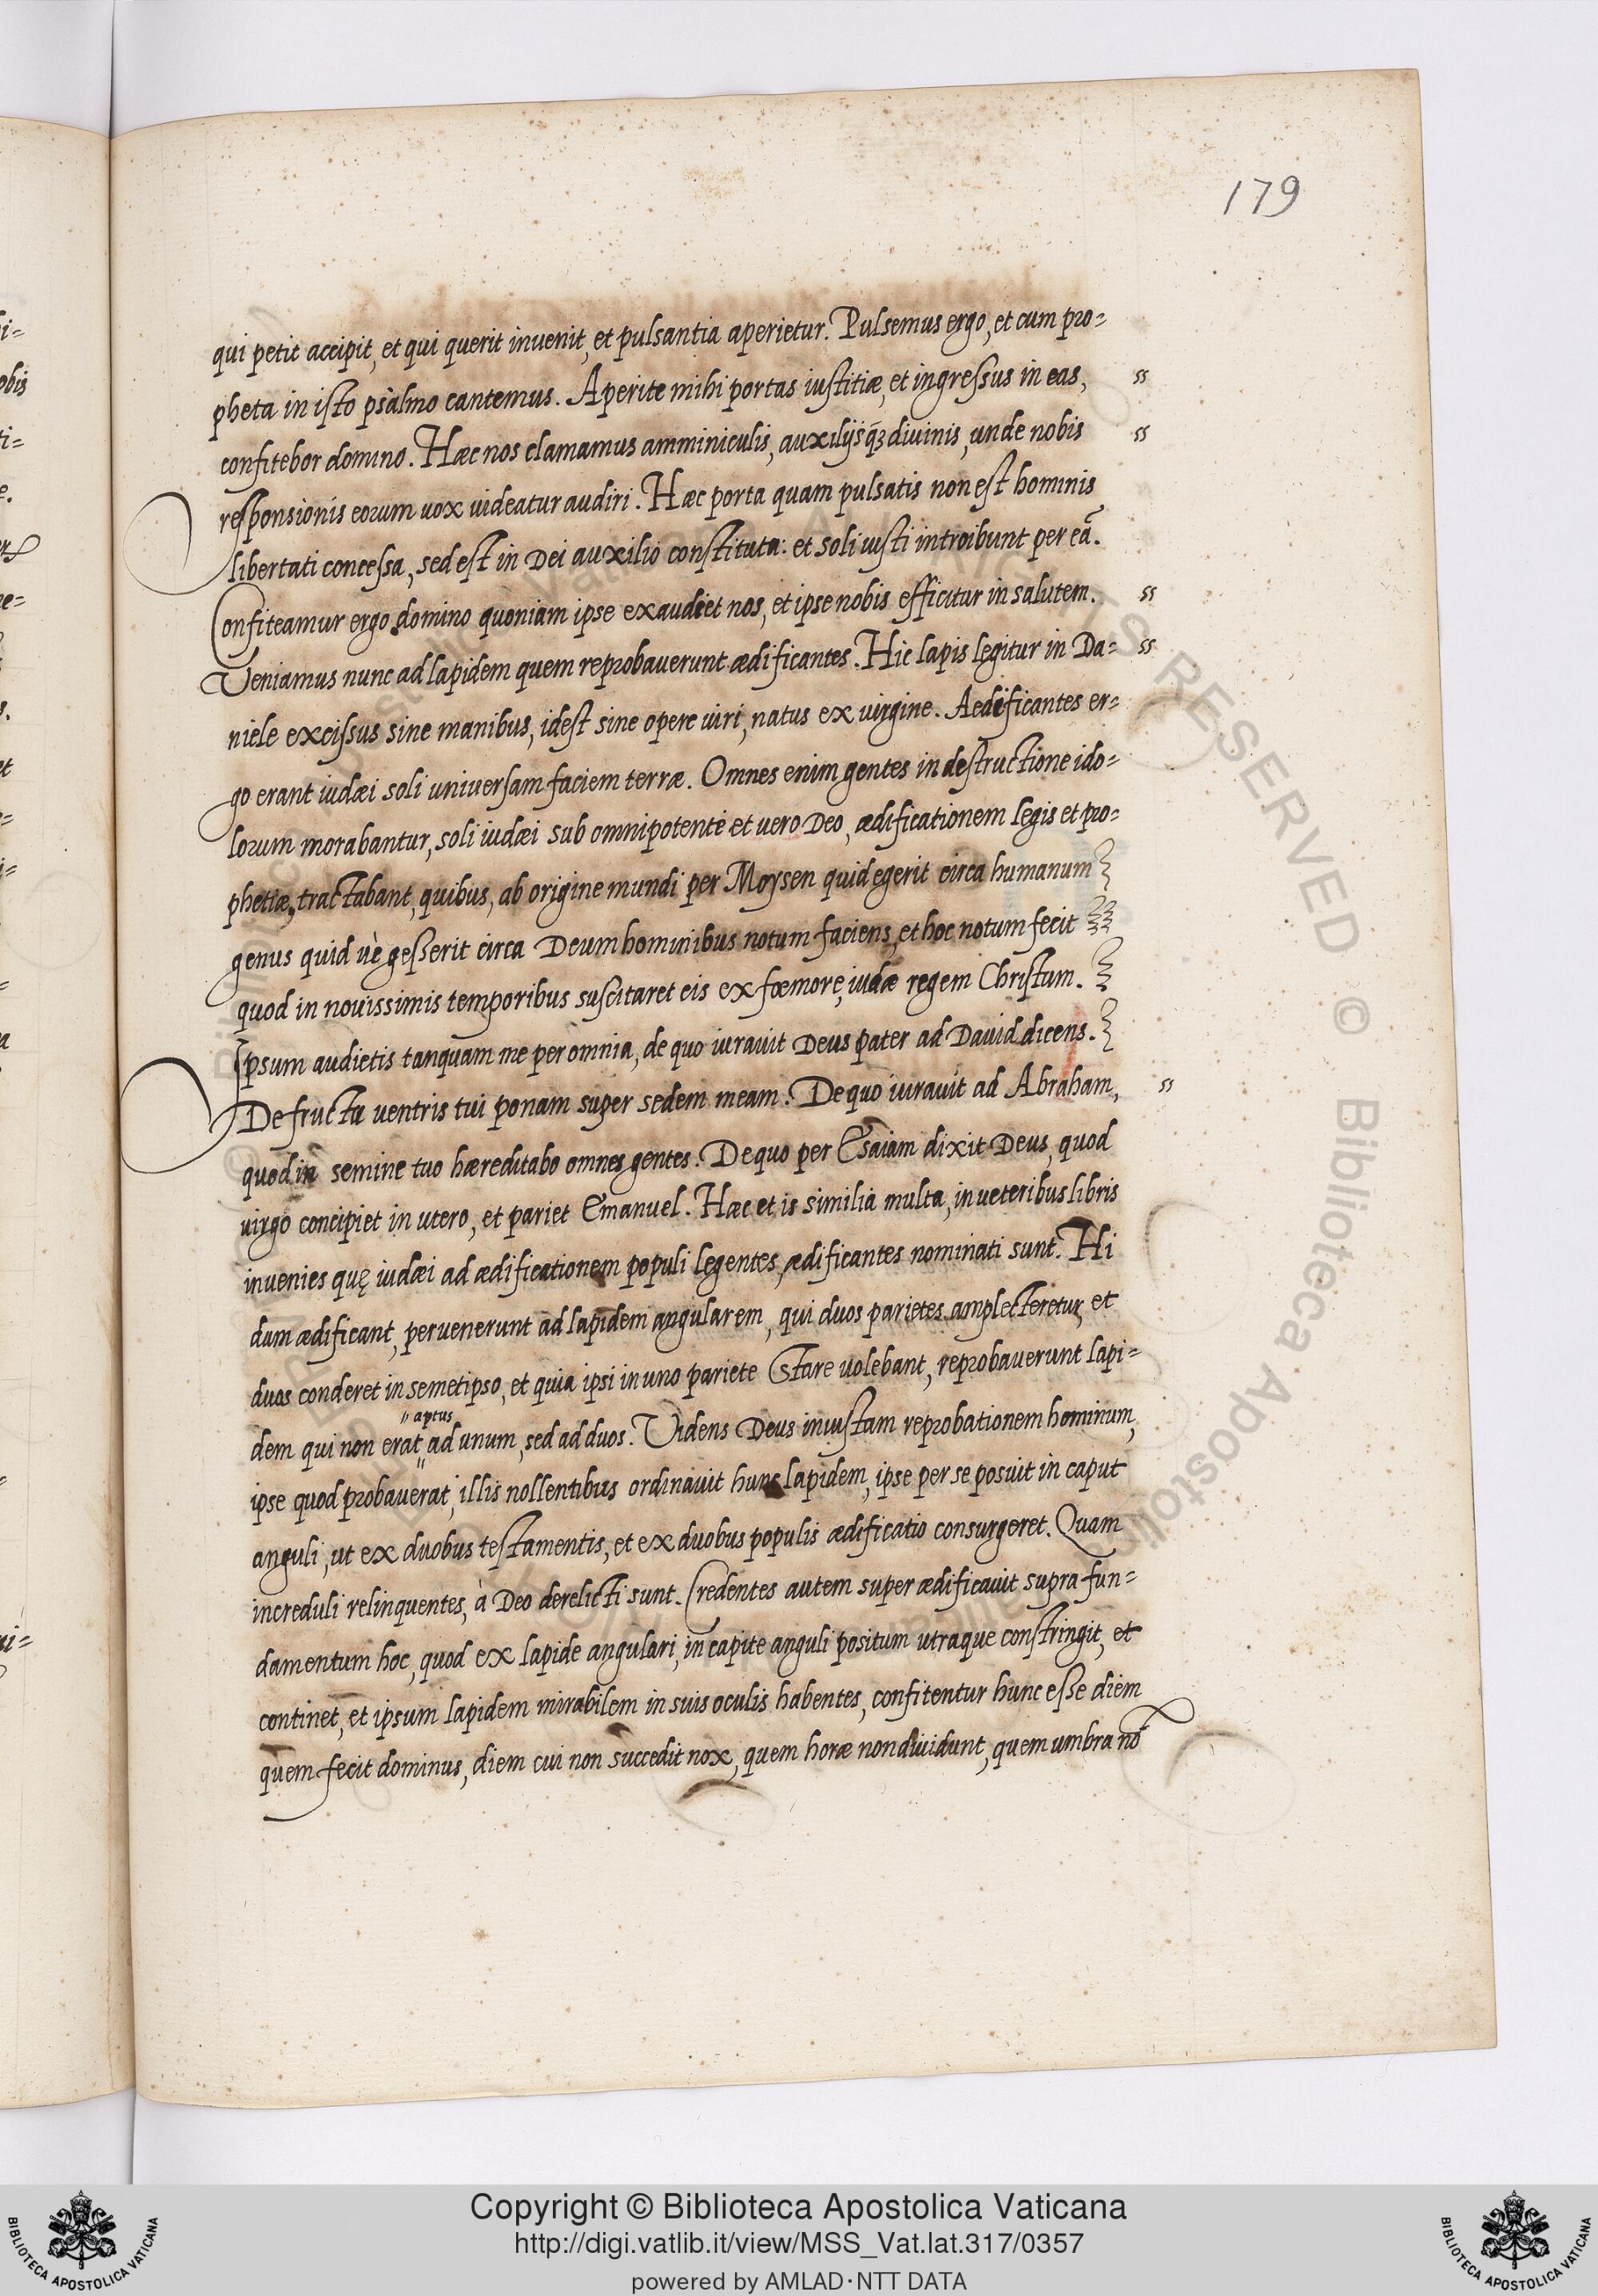 179
qui petit accipit, et qui querit inuenit, et pulsantia aperietur. Pulsemus ergo, et cum pro=
pheta in isto psalmo cantemus. Aperite mihi portas iustitiæ, et ingressus in eas, ss
confitebor domino. Hæc nos clamamus amminiculis, auxilijsq̃ꝫ diuinis, unde nobis ss
responsionis eorum uox uideatur audiri. Hæc porta quam pulsatis non est hominis
libertati concessa, sed est in Dei auxilio constituta: et soli iusti introibunt per eã.
Confiteamur ergo domino quoniam ipse exaudiet nos, et ipse nobis efficitur in salutem. ss
Veniamus nunc ad lapidem quem reprobauerunt ædificantes. Hic lapis legitur in Da= ss
niele excissus sine manibus, idest sine opere uiri, natus ex virgine. Aedificantes er=
go erant iudæi soli universam faciem terræ. Omnes enim gentes in destructione ido=
lorum morabantur, soli iudæi sub omnipotente et uero Deo, ædificationem legis et pro=
phetiæ, tractabant, quibus, ab origine mundi per Moysen quid egerit circa humanum
genus quid uè gesserit circa Deum hominibus notum faciens, et hoc notum fecit
quod in nouissimis temporibus suscitaret eis ex fœmore, iudæ regem Christum.
Ipsum audietis tanquam me per omnia, de quo iurauit Deus pater ad Dauid dicens.
De fructu ventris tui ponam super sedem meam. De quo iurauit ad Abraham, ss
quod in semine tuo hæreditabo omnes gentes. De quo per Esaiam dixit Deus, quod
uirgo concipiet in utero, et pariet Emanuel. Hæc et is similia multa, in ueteribus libris
inuenies quę iudæi ad ædificationem populi legentes, ædificantes nominati sunt. Hi
dum ædificant, peruenerunt ad lapidem angularem, qui duos parietes amplecteretur, et
duos conderet in semetipso, et quia ipsi in uno pariete stare uolebant, reprobauerunt lapi=
" aptus
dem qui non erat " ad unum, sed ad duos. Videns Deus iniustam reprobationem hominum,
ipse quod probauerat, illis nollentibus ordinauit hunc lapidem, ipse per se posuit in caput
anguli, ut ex duobus testamentis, et ex duobus populis ædificatio consurgeret. Quam
increduli relinquentes, à Deo derelicti sunt. Credentes autem super ædificauit supra fun=
damentum hoc, quod ex lapide angulari, in capite anguli positum utraque constringit, et
continet, et ipsum lapidem mirabilem in suis oculis habentes, confitentur hunc esse diem
quem fecit dominus, diem cui non succedit nox, quem horæ non diuidunt, quem umbra nõ
Copyright © Biblioteca Apostolica Vaticana
http://digi.vatlib.it/view/MSS_Vat.lat.317/0357
powered by AMLAD·NTT DATA
BIBLIOTECA APOSTOLICA VATICANA
BIBLIOTECA APOSTOLICA VATICANA